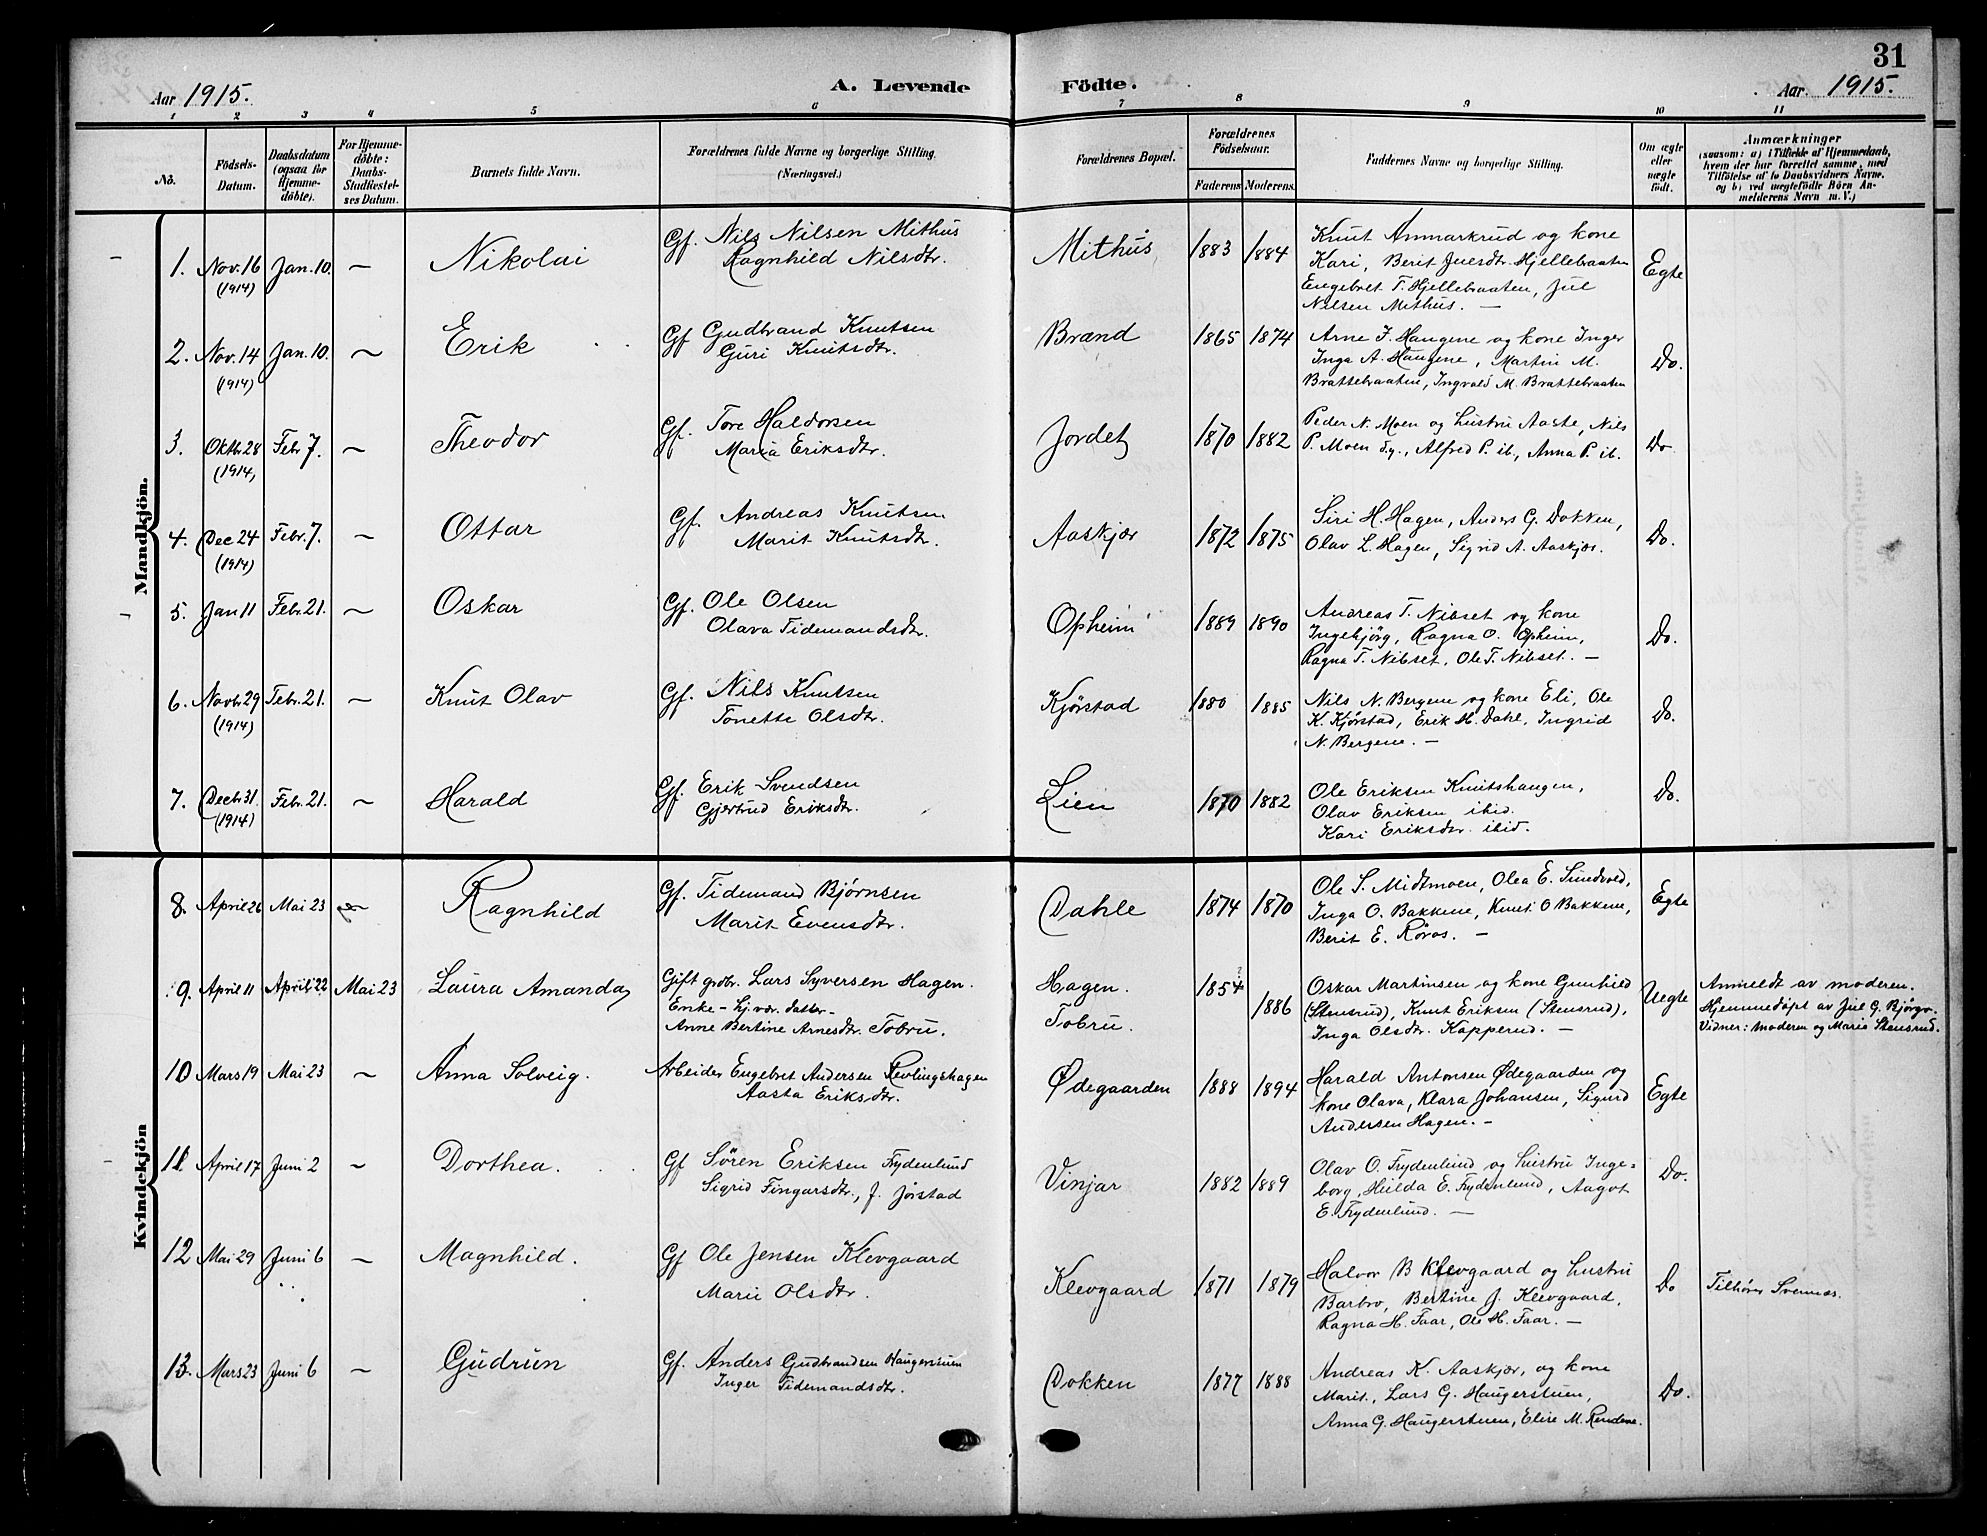 31
Aar 1915.
A. Levende
Födte.
Aar 1915.
1 2 3 4 5 6 7 8 9 10 11
No.
Födsels-Datum.
Daabsdatum (ogsaa for Hjemmedöbte).
For Hjemmedöbte: Daabs-Stadfæstelses Datum.
Barnets fulde Navn.
Forældrenes fulde Navne og borgerlige Stilling. (Næringsvei.)
Forældrenes Bopæl.
Forældrenes Födselsaar.
Faderens Moderens.
Faddernes Navne og borgerlige Stilling.
Om ægte eller uægte födt.
Anmærkninger
(saasom: a) i Tilfælde af Hjemmedaab,
hvem der har forrettet samme, med
Tilföielse af to Daabsvidners Navne.
og b) ved uægtefödte Börn An-
melderens Navn m. V.)
Mandkjön.
1. Nov. 16 (1914) Jan. 10. — Nikolai
Gf. Nils Nilsen Mithus
Ragnhild Nilsdtr.
Mithus 1883 1884
Knut Anmarkrud og kone
Kari, Berit Juesdtr. Hjellebraaten
Engebret T. Hjellebraaten, Jul
Nilsen Mithus. —
Egte
2. Nov. 14 (1914) Jan. 10. — Erik
Gf Gudbrand Knutsen
Guri Knutsdtr.
Brænd 1865 1874
Arne J. Haugene og kone Inger
Inga A. Haugene, Martin M.
Brattebraaten, Ingvald M. Brattebraaten
Do.
3. Oktbr 28 (1914) Febr 7. — Theodor
Gf. Tore Haldorsen
Maria Eriksdtr.
Jordet 1870 1882
Peder N. Moen og hustru Aaste, Nils
P. Moen d.y., Alfred P. ib., Anna P. ib.
Do
4. Dec 24 (1914) Febr. 7. — Ottar
Gf. Andreas Knutsen
Marit Knutsdtr.
Aaskjær 1872 1875
Siri H. Hagen, Anders G. Dokken,
Olav L. Hagen, Sigrid A. Aaskjær.
Do.
5. Jan 11 Febr. 21. — Oskar
Gf. Ole Olsen
Olava Tidemandsdtr.
Opheim 1889 1890
Andreas T. Nibset og kone
Ingebjörg, Ragna O. Opheim,
Ragna T. Nibset, Ole T. Nibset. —
Do.
6. Novbr 29 (1914) Febr. 21. — Knut Olav
Gf. Nils Knutsen
Tonette Olsdtr.
Kjørstad 1880 1885
Nils N. Bergene og kone Eli, Ole
K. Kjørstad, Erik H. Dahl, Ingrid
N. Bergene. —
Do.
7. Decbr 31. (1914) Febr. 21. — Harald
Gf. Erik Svendsen
Gjertrud Eriksdtr.
Lien 1870 1882
Ole Eriksen Knutshaugen,
Olav Eriksen ibid.
Kari Eriksdtr. ibid.
Do.
Kvindekjön
8. April 26 Mai 23 — Ragnhild
Gf. Tidemand Bjørnsen
Marit Evensdtr.
Dahle 1874 1870
Ole S. Midtmoen, Olea E. Sundvold,
Inga O. Bakkene, Knut O Bakkene,
Berit E. Røvas. —
Egte
9. April 11 April 22 Mai 23 Laura Amanda
Gift grdbr. Lars Syversen Hagen.
Enke – hj.vær. datter –
Anne Bertine Arnesdtr. Tobru.
Hagen.
Tobru.
1854 ? 1886
Oskar Martinsen og kone Gunhild
(Stensrud), Knut Eriksen (Stensrud),
Inga Olsdtr. Kapperud. —
Uegte
Anmeldt av moderen.
Hjemmedöpt av Jul G. Bjørgo.
Vidner: moderen og Marie Stensrud.
10 Mars 19 Mai 23 — Anna Solveig.
Arbeider Engebret Andersen Revlingshagen
Aasta Eriksdtr.
Ødegaarden 1888 1894
Harald Antonsen Ødegaarden og
kone Olava, Klara Johansen, Sigurd
Andersen Hagen. –
Egte
11. April 17 Juni 2 — Dorthea.
Gf Sören Eriksen Frydenlund
Sigrid Fingarsdtr., f. Jørstad
Vinjar 1882 1889
Olav O. Frydenlund og hustru Inge-
borg, Hilda E. Frydenlund, Aagot
E. Frydenlund. —
Do.
12 Mai 29 Juni 6 — Magnhild.
Gf Ole Jensen Klevgaard
Marie Olsdtr.
Klevgaard 1871 1879
Halvor B Klevgaard og hustru
Barbro, Bertine J. Klevgaard,
Ragna H. Faar, Ole H. Faar. —
Do
Tilhører Svennes.
13. Mars 23 Juni 6 — Gudrun
Gf. Anders Gudbrandsen Haugerstuen
Inger Tidemandsdtr.
Dokken 1877 1888
Andreas K. Aaskjær, og kone
Marit., Lars G. Haugerstuen,
Anna G. Haugerstuen, Elise M. Rendene.
Do.